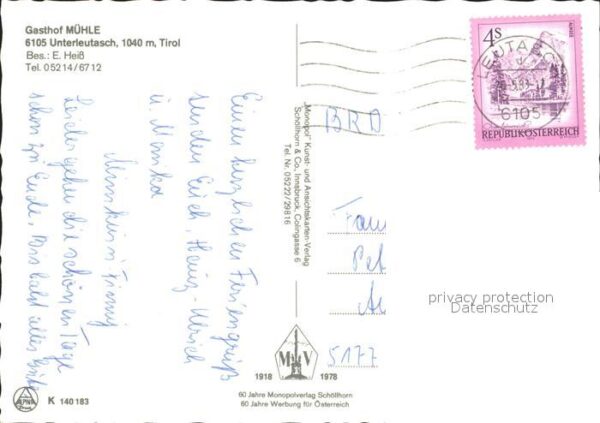 Gasthof MÜHLE
6105 Unterleutasch, 1040 m, Tirol
Bes.: E. Heiß
Tel. 05214/6712
Einen herzlichen Feriengruß
senden Euch, Heinz-Ulrich
u. Monika
Leider gehen die schönen Tage
schon zu Ende. Bis bald alles Gute
K 140183
„Monopol" Kunst- und Ansichtskarten-Verlag
Schöllhorn & Co., Innsbruck, Colingasse 6
Tel. Nr. 05222/29816
MV
1918 1978
60 Jahre Monopolverlag Schöllhorn
60 Jahre Werbung für Österreich
4S
REPUBLIK ÖSTERREICH
LEUTASCH
6105
BRD
Fam
Pet
5177
privacy protection
Datenschutz